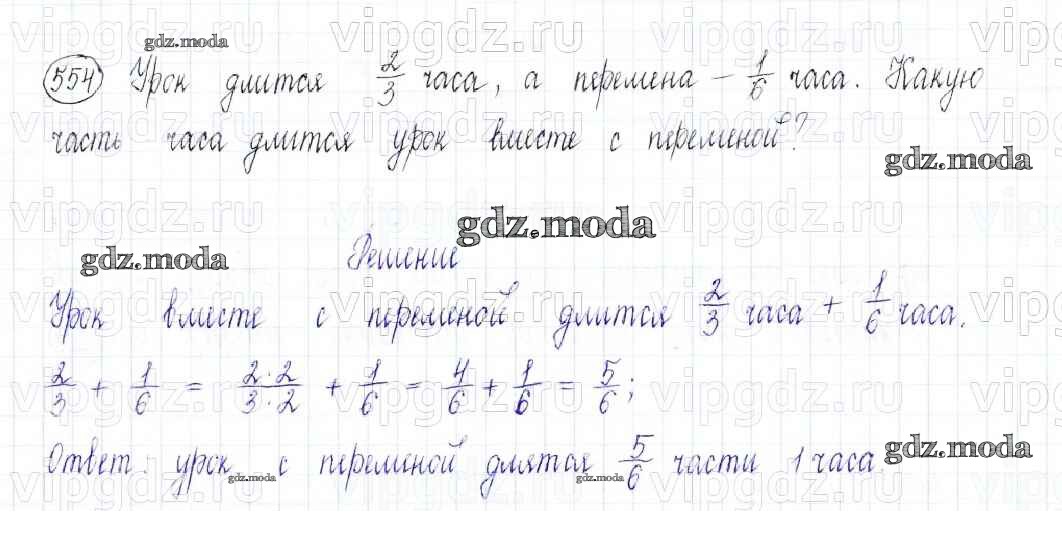 gdz.moda
554 Урок длится 2/3 часа, а перемена – 1/6 часа. Какую
часть часа длится урок вместе с переменой?
gdz.moda
gdz.moda
gdz.moda
Решение
Урок вместе с переменой длится 2/3 часа + 1/6 часа.
2/3 + 1/6 = 2·2/3·2 + 1/6 = 4/6 + 1/6 = 5/6;
Ответ: урок с переменой длятся 5/6 части 1 часа.
gdz.moda
gdz.moda
gdz.moda
vipgdz.ru